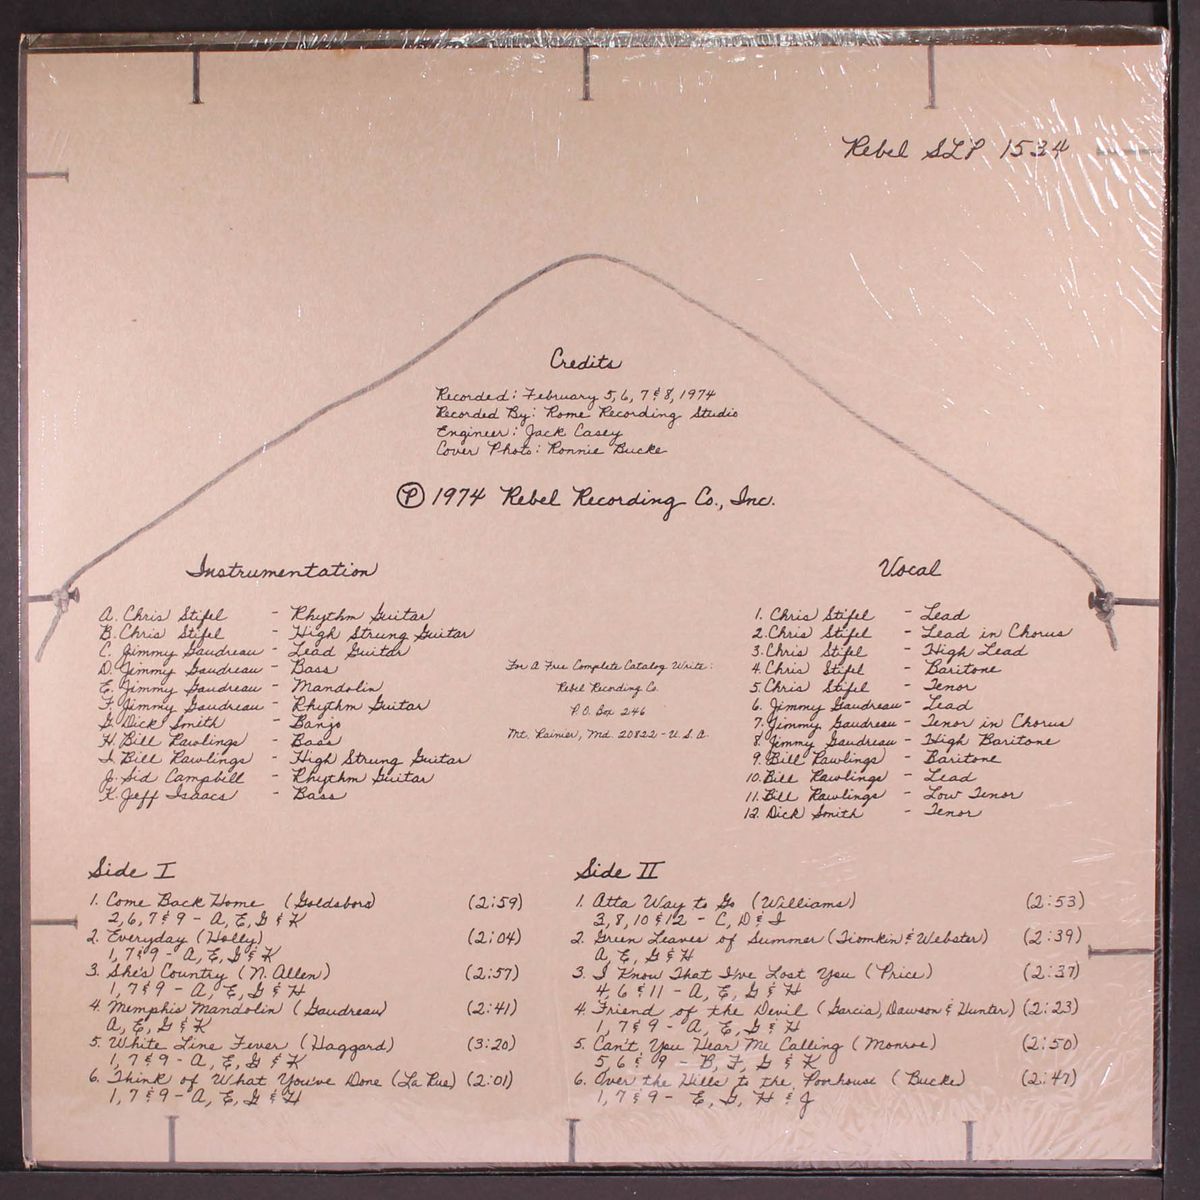 Rebel SLP 1534
Credits
Recorded: February 5, 6, 7 & 8, 1974
Recorded By: Rome Recording Studio
Engineer: Jack Casey
Cover Photo: Ronnie Bucke
Ⓟ 1974 Rebel Recording Co., Inc.
Instrumentation
A. Chris Stifel - Rhythm Guitar
B. Chris Stifel - High Strung Guitar
C. Jimmy Gaudreau - Lead Guitar
D. Jimmy Gaudreau - Bass
E. Jimmy Gaudreau - Mandolin
F. Jimmy Gaudreau - Rhythm Guitar
G. Dick Smith - Banjo
H. Bill Rawlings - Bass
I. Bill Rawlings - High Strung Guitar
J. Sid Campbell - Rhythm Guitar
K. Jeff Isaacs - Bass
For A Free Complete Catalog Write:
Rebel Recording Co.
P.O. Box 246
Mt. Rainier, Md. 20822 - U.S.A.
Vocal
1. Chris Stifel - Lead
2. Chris Stifel - Lead in Chorus
3. Chris Stifel - High Lead
4. Chris Stifel - Baritone
5. Chris Stifel - Tenor
6. Jimmy Gaudreau - Lead
7. Jimmy Gaudreau - Tenor in Chorus
8. Jimmy Gaudreau - High Baritone
9. Bill Rawlings - Baritone
10. Bill Rawlings - Lead
11. Bill Rawlings - Low Tenor
12. Dick Smith - Tenor
Side I
1. Come Back Home (Goldsboro) (2:59)
2, 6, 7 & 9 - A, E, G & K
2. Everyday (Holly) (2:04)
1, 7 & 9 - A, E, G & K
3. She's Country (N. Allen) (2:57)
1, 7 & 9 - A, E, G & H
4. Memphis Mandolin (Gaudreau) (2:41)
A, E, G & K
5. White Line Fever (Haggard) (3:20)
1, 7 & 9 - A, E, G & K
6. Think of What You've Done (La Rue) (2:01)
1, 7 & 9 - A, E, G & H
Side II
1. Atta Way to Go (Williams) (2:53)
3, 8, 10 & 12 - C, D & I
2. Green Leaves of Summer (Tiomkin & Webster) (2:39)
A, E, G & H
3. I Know That I've Lost You (Price) (2:37)
4, 6 & 11 - A, E, G & H
4. Friend of the Devil (Garcia, Dawson & Hunter) (2:23)
1, 7 & 9 - A, E, G & H
5. Can't You Hear Me Calling (Monroe) (2:50)
5, 6 & 9 - B, F, G & K
6. Over the Hills to the Poorhouse (Bucke) (2:47)
1, 7 & 9 - E, G, H & J